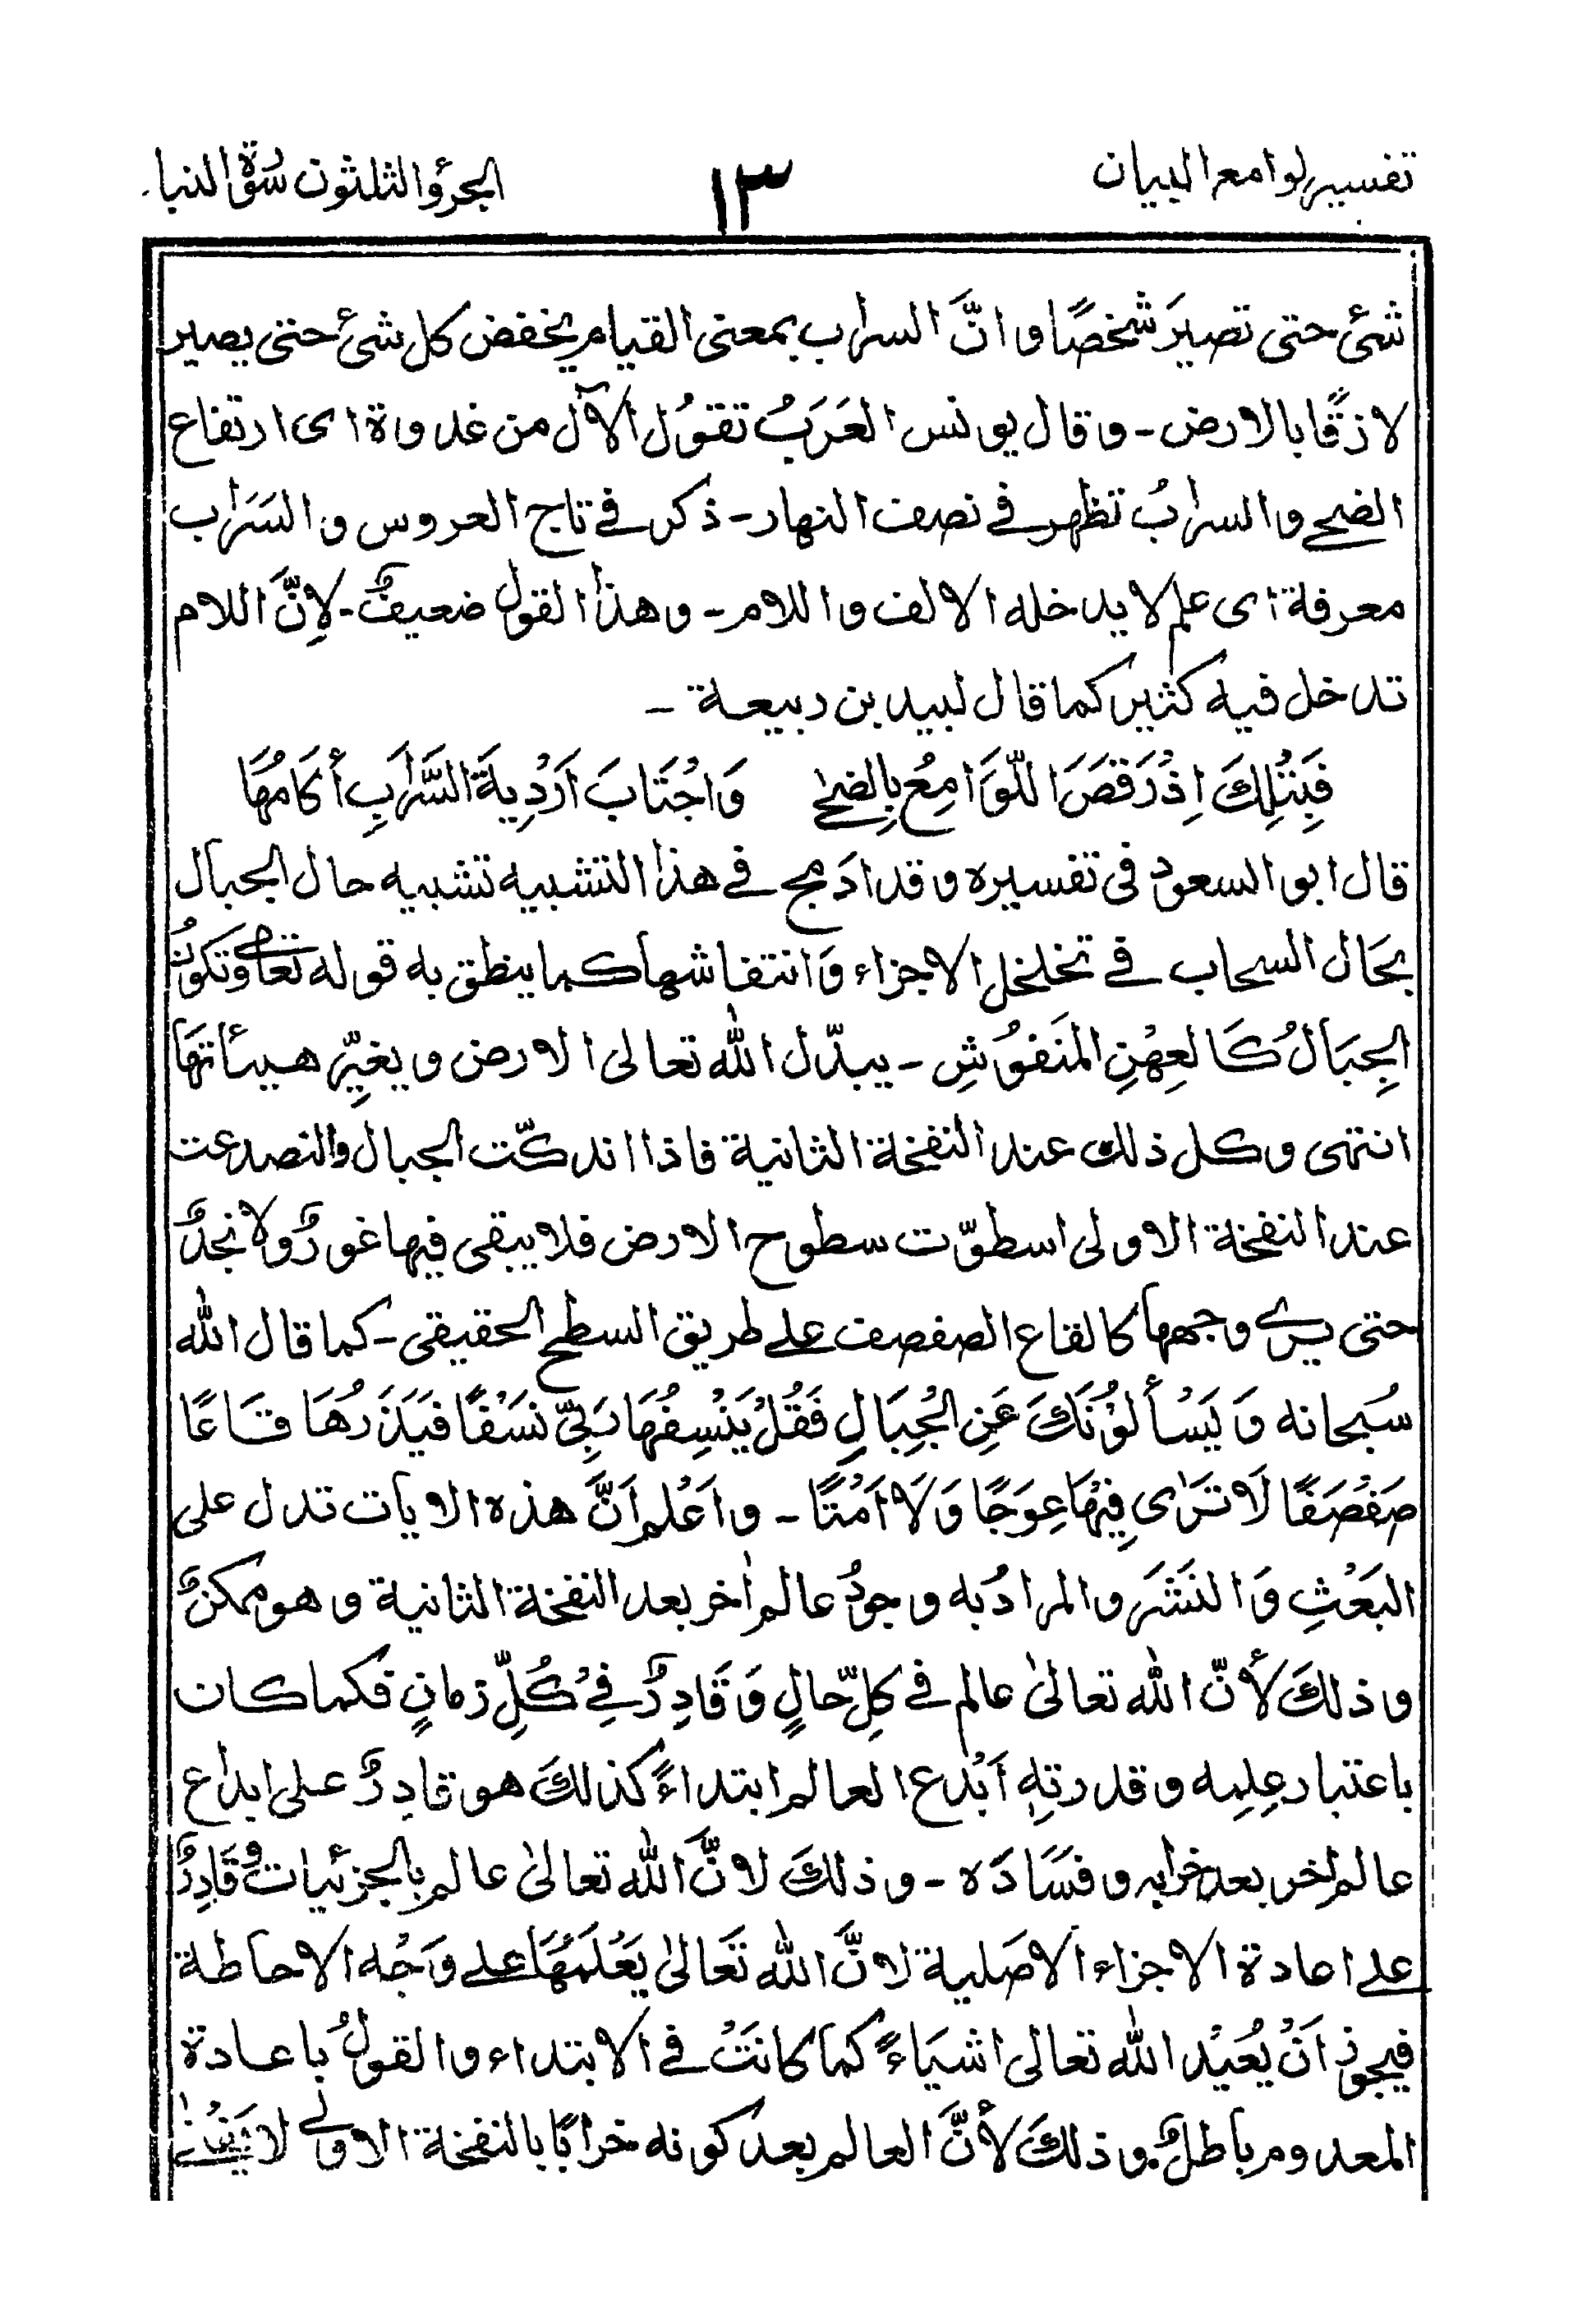 تفسير لوامع البيان ١٣ الجزؤ الثلثون سُورة النبا
شئ حتى تصيرَ شخصًا و انَّ السراب بمعنى القيام يخفض كل شئ حتى يصير
لازقًا بالارض ـ وقال يونس العَرَبُ تقوُل الآل من غدوة اى ارتفاع
الضحے والسرابُ تظهر فے نصف النهار ـ ذكر فے تاج العروس والسَرَاب
معرفة اى علم لا يدخله الالف واللام ـ وهذا القول ضعيفٌ ـ لِانَّ اللام
تدخل فيه كثير كما قال لبيد بن ربيعة ـ
فَبِتْلِكَ اِذْ رَقَصَ اللّوَامِعُ بِالضحٰے وَاجْتَابَ اَرْدِيةَ السَّرَابِ أكَامُهَا
قال ابو السعود فى تفسيره وقد ادَمج فے هذا التشبيه تشبيه حال الجبال
بحَال السحاب فے تخلخل الاجزاء وَانتفاشها كما ينطق به قوله تعالٰے وَتَكوُنُ
الجِبَالُ كَالعِهْنِ المَنفوُشِ ـ يبدّل الله تعالى الارض ويغيِّر هيئاتهَا
انتهى وكل ذلك عند النفخة الثانية فاذا اندكّت الجبال والنصدعت
عند النفخة الاولى اسطوّت سطوح الارض فلا يبقى فيها غورٌ ولا نجدٌ
حتى يرے وجهها كالقاع الصفصف علے طريق السطح الحقيقى ـ كما قال الله
سُبحانه وَ يَسْألوُنَكَ عَنِ الْجِبَالِ فَقُلْ يَنْسِفُهَا رَبِّىْ نَسْفًا فَيَذَرُهَا قَاعًا
صَفْصَفًا لَا تَرَاى فِيْهَا عِوَجًا وَلَا اَمْتًا ـ واَعْلم اَنَّ هذه الايات تدل على
البَعْثِ وَالنَشَر والمرادُ به وجودُ عالم اٰخر بعد النفخة الثانية وهو ممكنٌ
وذلكَ لأنّ الله تعالىٰ عالم فے كلِّ حالٍ وَقَادِرٌ فِےْ كُلِّ زمانٍ فكما كان
باعتبار عِلمِه وقدرتِهٖ اَبْدع العالم ابتداءً كذلكَ هو قادِرٌ على ابداع
عالم اٰخر بعد خرابه وفسَادَه ـ وذلكَ لانَّ الله تعالىٰ عالم بالجزئيات وقَادِرٌ
علے اعادة الاجزاء الاصَلية لانَّ الله تَعالىٰ يَعْلَمُهَا علے وَجْه الاحاطة
فيجوز اَنْ يُعيْد الله تعالى اشيَاءً كما كانَتْ فے الابتداء والقولُ باعادة
المعدوم باطلٌ وذلكَ لأنَّ العالم بعد كونه خرابًا بالنفخة الاولٰے لا يَفنٰے